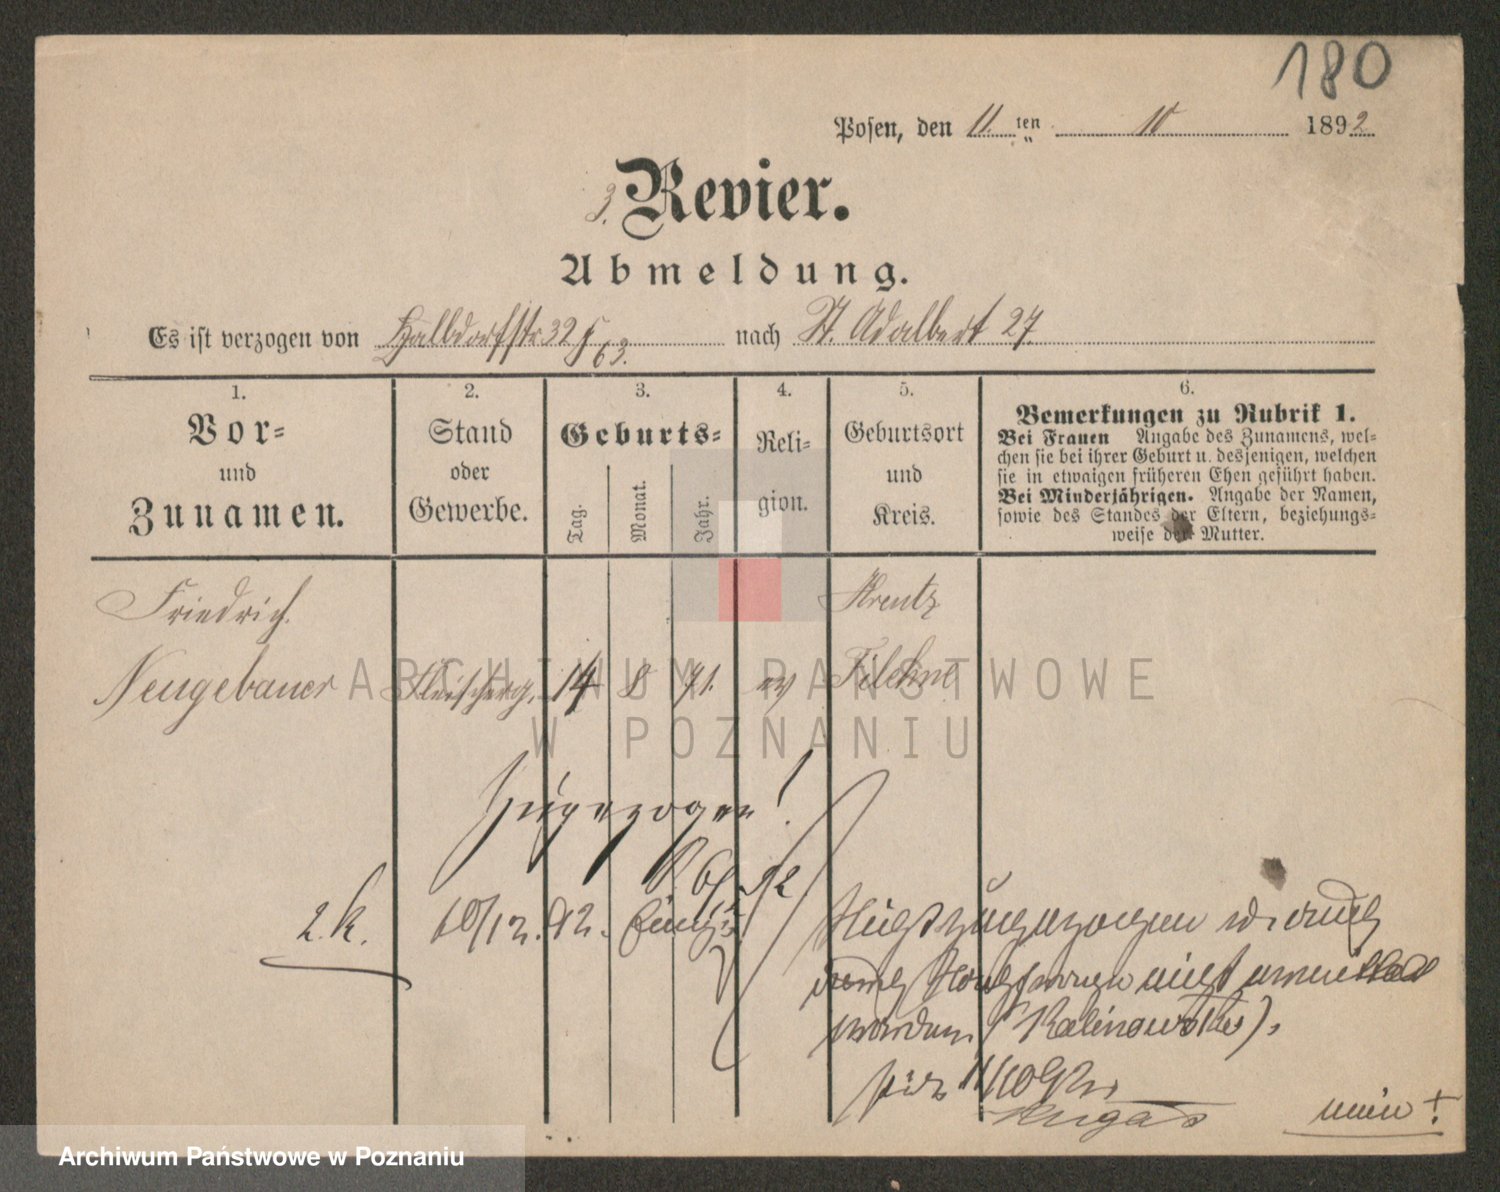 180
Posen, den 11. ten 10 1892
3. Revier.
Abmeldung.
Es ist verzogen von Halbdorfstr 32 nach St. Adalbert 27.
63.
1.
Vor-
und
Zunamen.
2.
Stand
oder
Gewerbe.
3.
Geburts-
Tag.
Monat.
Jahr.
4.
Reli-
gion.
5.
Geburtsort
und
Kreis.
6.
Bemerkungen zu Rubrik 1.
Bei Frauen Angabe des Zunamens, wel-
chen sie bei ihrer Geburt u. desjenigen, welchen
sie in etwaigen früheren Ehen geführt haben.
Bei Minderjährigen. Angabe der Namen,
sowie des Standes der Eltern, beziehungs-
weise der Mutter.
Friedrich Kreutz
Neugebauer 14 8 91. ev Filehne
ARCHIWUM PAŃSTWOWE
W POZNANIU
Zugezogen!
2. K. 10/12. 92.
nicht
worden (Kalinowski).
11/10 92.
nein +
Archiwum Państwowe w Poznaniu